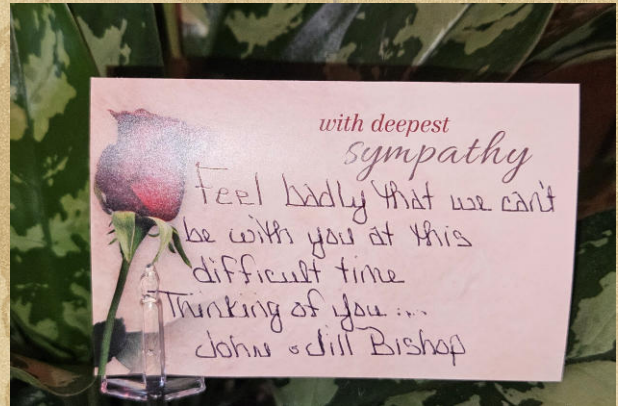 with deepest
sympathy
Feel badly that we can't
be with you at this
difficult time
Thinking of you...
John & Jill Bishop